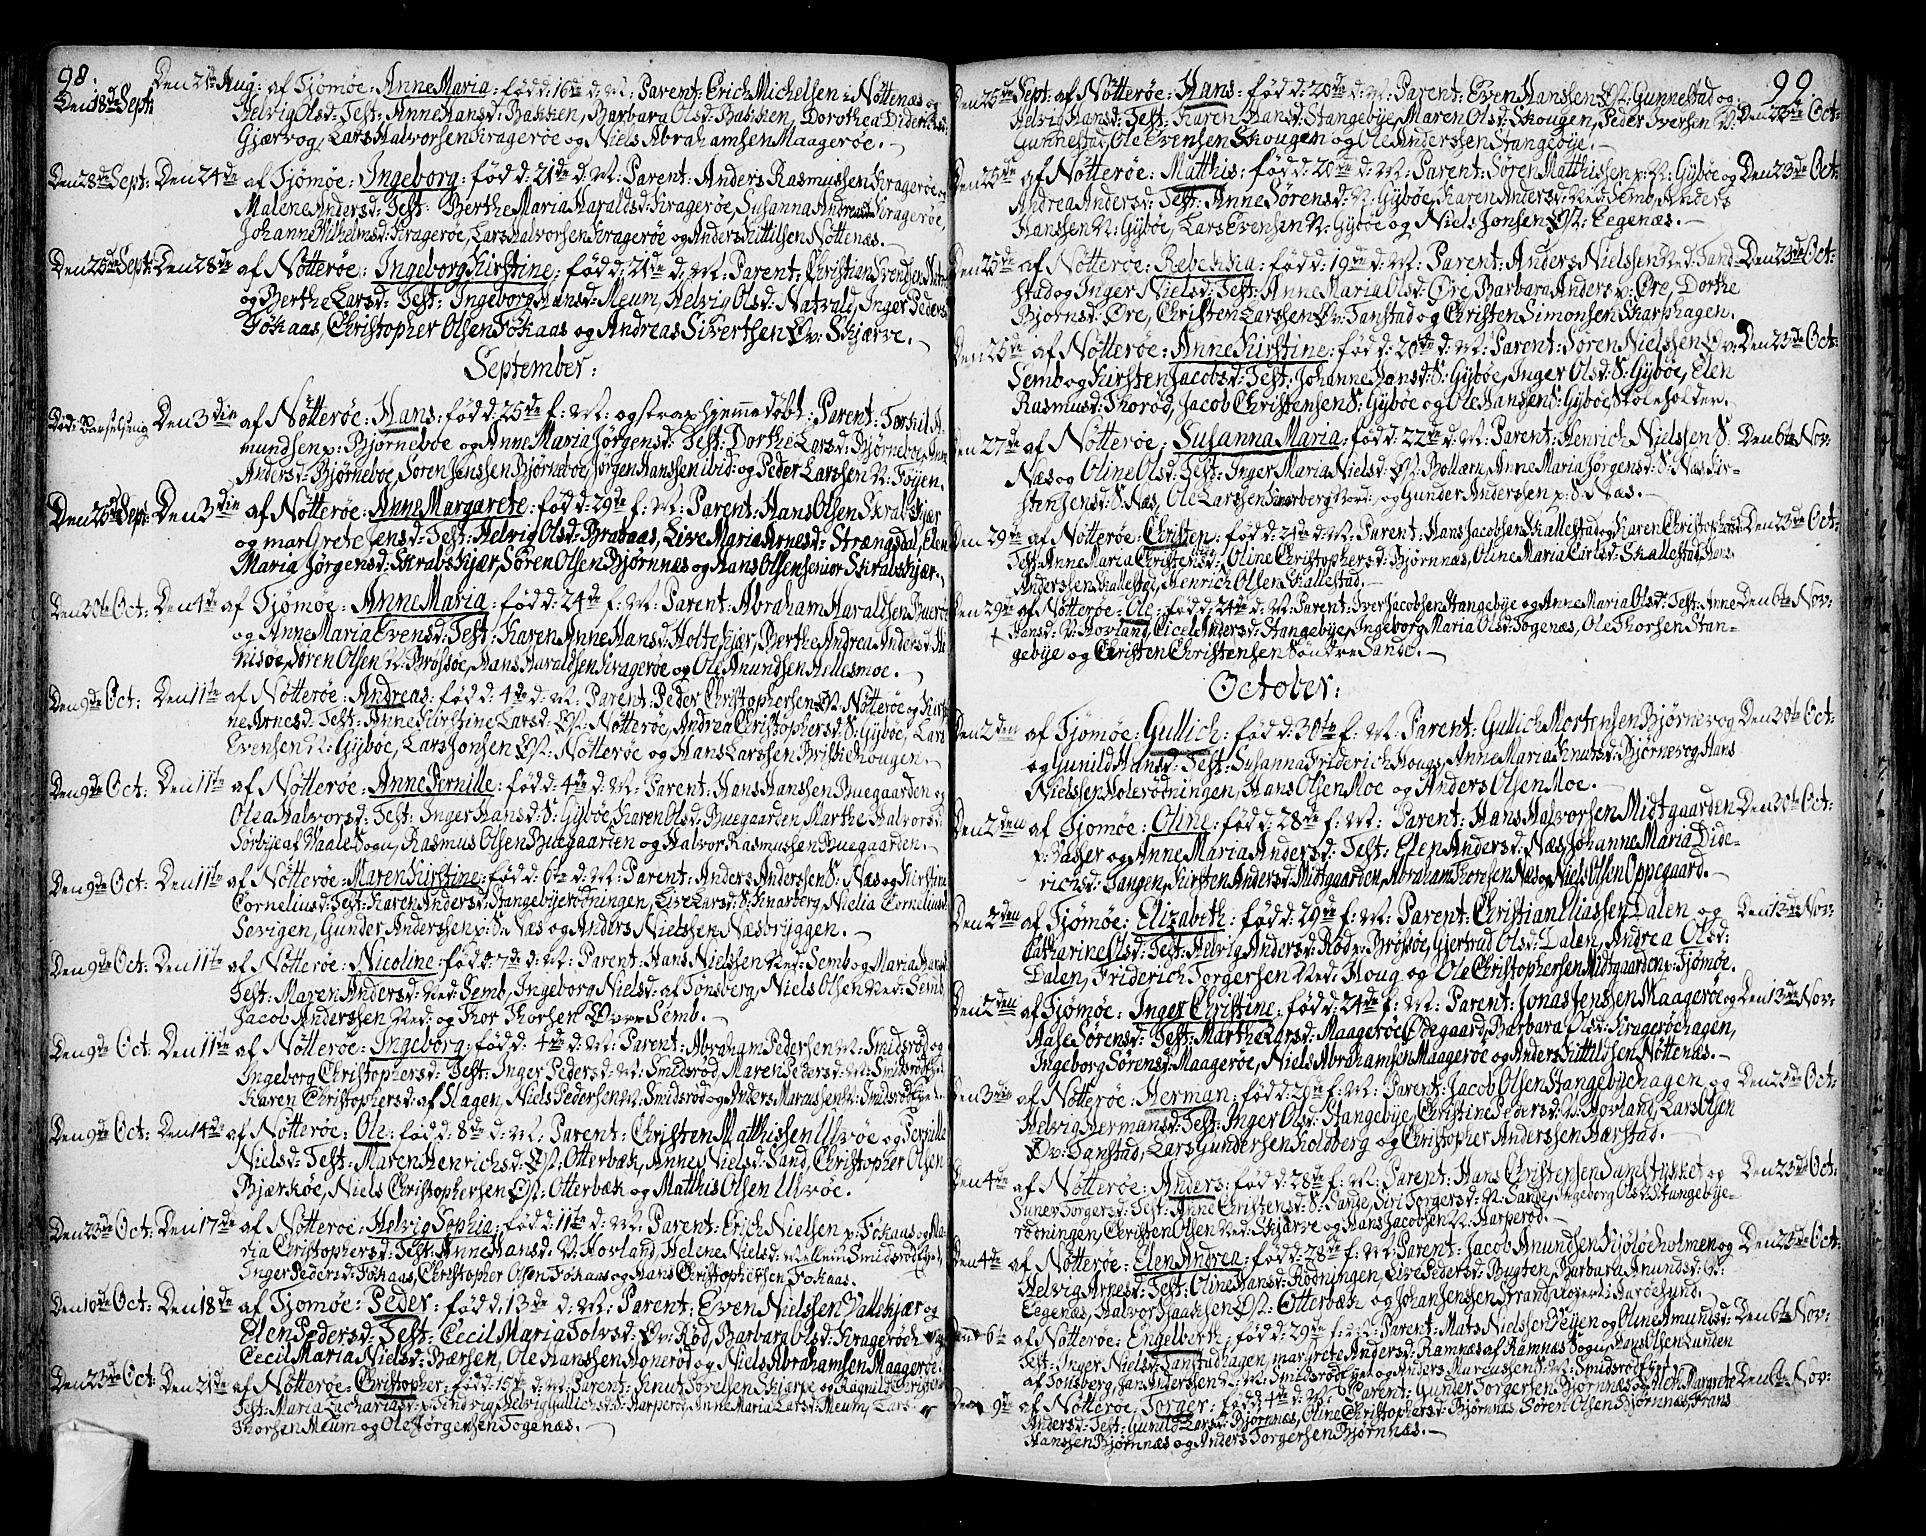 98.
Den 21de Aug: af Tjömöe: Anne Maria: föd d: 16de d: M: Parent: Erich Michelsen Nöttenæs og
Den 18de Sept:
Helvig Olsd: Test: Anne Hansd: Bakken, Barbara Olsd: Bakken, Dorothea Diderichsd:
Gjærvog, Lars Halvorsen Kragerøe og Niels Abrahamsen Maagerøe.
Den 28de Sept: Den 24de af Tjömöe: Ingeborg: föd d: 21de d: M: Parent: Anders Rasmussen Kragerøe og
Malene Andersd: Test: Berthe Maria Haraldsd: Kragerøe, Susanna Andreasd: Kragerøe,
Johanne Wilhelmsd: Kragerøe, Lars Halvorsen Kragerøe og Anders Kittilsen Nöttenæs.
Den 25de Sept: Den 28de af Nötteröe: Ingeborg Kirstine: föd d: 21de d: M: Parent: Christian Svendsen
og Berthe Larsd: Test: Ingeborg Hansd: Meum, Helvig Olsd: Natvald, Inger Pedersd:
Fökaas, Christopher Olsen Fökaas og Andreas Sivertsen Öv: Skjærve.
September:
Död: Barselseng Den 3die af Nötteröe: Hans: föd d: 25de f: M: og strax hjemmedöbt: Parent: Torkil A-
mundsen p: Björneboe og Anne Maria Jörgensd: Test: Dorthe Larsd: Björneboe, Anne
Andersd: Björneboe, Sören Jenssen Björneboe, Jörgen Hanssen ibid: og Peder Larssen N: Föyen.
Den 26de Sept: Den 3die af Nötteröe: Anne Margarete: föd d: 29de f: M: Parent: Hans Olsen Skrabskjær
og margrete Jensd: Test: Helvig Olsd: Brataas, Live Maria Arnesd: Strængsdal, Elen
Maria Jörgensd: Skrabskjær, Sören Olsen Björnnæs og Hans Olsen senior Skrabskjær.
Den 20de Oct: Den 4de af Tjömöe: Anne Maria: föd d: 24de f: M: Parent: Abraham Haraldsen Bueröe
og Anne Maria Evensd: Test: Karen Anne Hansd: Holtekjær, Berthe Andrea Andersd: Ha-
kisöe, Sören Olsen N: Brötsöe, Hans Haraldsen Kragerøe og Ole Anundsen Hellesmoe.
Den 9de Oct: Den 11te af Nötteröe: Andreas: föd d: 4de d: M: Parent: Peder Christophersen Öst: Nötteröe og Kirsti-
ne Arnesd: Test: Anne Kirstine Larsd: Öst: Nötteröe, Andrea Christophersd: S: Gyböe, Lars
Evensen N: Gyböe, Lars Jonsen Öst: Nötteröe og Hans Larssen Briskeskougen.
Den 9de Oct: Den 11te af Nötteröe: Anne Pernille: föd d: 4de d: M: Parent: Hans Hanssen Buegaarden og
Olea Halvorsd: Test: Inger Hansd: S: Gyböe, Karen Olsd: Buegaarden, Marthe Halvorsd:
Sörbye af Vaale Sogn, Rasmus Olsen Buegaarden og Halvor Rasmussen Buegaarden.
Den 9de Oct: Den 11te af Nötteröe: Maren Kirstine: föd d: 6te d: M: Parent: Anders Anderssen S: Næs og Kirstine
Corneliusd: Test: Karen Andersd: Stangebyerödningen, Live Larsd: S: Knarberg, Nielia Corneliusd:
Sevigen, Gunder Anderssen p: S: Næs og Anders Nielssen Næsbryggen.
Den 9de Oct: Den 11te af Nötteröe: Nicoline: föd d: 7de d: M: Parent: Hans Nielssen Ned: Semb og Maria Hansd:
Test: Maren Andersd: Ned: Semb, Ingeborg Nielsd: af Tonsberg, Niels Olsen Ned: Semb
Jacob Anderssen Ned: og Thor Thorsen Övre Semb.
Den 9de Oct: Den 11te af Nötteröe: Ingeborg: föd d: 4de d: M: Parent: Abraham Pedersen N: Smidsröd og
Ingeborg Christophersd: Test: Inger Pedersd: N: Smidsröd, Maren Pedersd: N: Smidsrödhjet
Karen Christophersd: af Slagen, Niels Pedersen N: Smidsröd og Anders Marcussen N: Smidsrödhjet.
Den 9de Oct: Den 14de af Nötteröe: Ole: föd d: 8de d: M: Parent: Christen Matthissen Ulvöe og Pernille
Nielsd: Test: Maren Henrichsd: Öst: Otterbæk, Anne Nielsd: Sand, Christopher Olsen
Bjærköe, Niels Christophersen Öst: Otterbæk og Matthis Olsen Ulvöe.
Den 23de Oct: Den 17de af Nötteröe: Helvig Sophia: föd d: 11te d: M: Parent: Erich Nielsen p: Fökaas og Ma-
ria Christophersd: Test: Anne Hansd: N: Hovland, Helene Nielsd: Mellem Smidsrödhjet,
Inger Pedersd: Fökaas, Christopher Olsen Fökaas og Hans Christophersen Fökaas.
Den 10de Oct: Den 18de af Tjömöe: Peder: föd d: 13de d: M: Parent: Even Nielssen Vallekjær og
Elen Pedersd: Test: Cecil Maria Tolvsd: Öv: Röd, Barbara Olsd: Kragerøeh
Cecil Maria Nielsd: Bærsen, Ole Hanssen Honeröd og Niels Abrahamsen Maagerøe.
Den 23de Oct: Den 21de af Nötteröe: Christopher: föd d: 15de d: M: Parent: Knut Sörelsen Skjærpe og Ragnild Christensd:
Test: Maria Zachariasd: p: Hindrig, Helvig Gullichsd: S: Harperöd, Anne Maria Larsd: Meum, Lars
Thorsen Meum og Ole Jörgensen Togenæs.
99.
Den 25de Sept: af Nötteröe: Hans: föd d: 20de d: M: Parent: Even Hanssen Öst: Gunnestad og Den 23de Oct:
Helvig Hansd: Test: Karen Hansd: Stangebye, Maren Olsd: Skougen, Peder Iversen N:
Gunnestad, Ole Evensen Skougen og Ole Anderssen Stangebye.
Den 25de af Nötteröe: Matthis: föd d: 20de d: M: Parent: Sören Matthissen p: N: Gyböe og Den 23de Oct:
Andrea Andersd: Test: Anne Sörensd: N: Gyböe, Karen Andersd: Ned: Semb, Anders
Hanssen N: Gyböe, Lars Evensen N: Gyböe og Niels Jonsen Öst: Eegenæs.
Den 25de af Nötteröe: Rebekka: föd d: 19de d: M: Parent: Anders Nielssen Ned: Tand- Den 23de Oct:
stad og Inger Nielsd: Test: Anne Maria Olsd: Öre, Barbara Andersd: Öre, Dorthe
Bjornsd: Öre, Christen Larssen Öv: Tanstad og Christen Simonsen Skarphagen.
Den 25de af Nötteröe: Anne Kirstine: föd d: 20de d: M: Parent: Sören Nielssen Öv: Den 23de Oct:
Semb og Kirsten Jacobsd: Test: Johanne Hansd: S: Gyböe, Inger Olsd: S: Gyböe, Elen
Rasmusd: Thoröd, Jacob Christensen S: Gyböe og Ole Hansen S: Gyböe, Stoleholder.
Den 27de af Nötteröe: Susanna Maria: föd d: 22de d: M: Parent: Henrich Nielssen S: Den 6te Nov:
Næs og Oline Olsd: Test: Inger Maria Nielsd: Öst: Bollærn, Anne Maria Jörgensd: S: Næs Kir-
sten Jensd: S: Næs, Ole Larssen Knarberg Nord: og Gunder Anderssen p: S: Næs.
Den 29de af Nötteröe: Christen: föd d: 21de d: M: Parent: Hans Jacobsen Skallestad og Karen Christophersd: Den 23de Oct:
Test: Anne Maria Christensd: Oline Christophersd: Björnnæs, Oline Maria Carlsd: Skallestad, Hans
Anderssen Skallestad, Henrich Olsen Skallestad.
Den 29de af Nötteröe: Ole: föd d: 24de d: M: Parent: Iver Jacobsen Stangebye og Anne Maria Olsd: Test: Anne Den 6te Nov:
Hansd: N: Hovland, Cicel Andersd: Stangebye, Ingeborg Maria Olsd: Togenæs, Ole Thorsen Stan-
gebye og Christen Christensen Söndre Sande.
October:
Den 2den af Tjömöe: Gullich: föd d: 30te f: M: Parent: Gullich Mortensen Björnevog Den 20de Oct:
og Gunild Hansd: Test: Susanna Friderich Hougs, Anne Maria Knutsd: Björnevog, Hans
Nielssen Holerödningen, Hans Olsen Moe og Anders Olsen Moe.
Den 2den af Tjömöe: Oline: föd d: 28de f: M: Parent: Hans Halvorsen Midtgaarden Den 20de Oct:
p: Vasser og Anne Maria Andersd: Test: Elen Andersd: Næs, Johanne Maria Dide-
richsd: Tangen, Kirsten Andersd: Midtgaarden, Abraham Thoresen Næs og Niels Olsen Oppegaard.
Den 2den af Tjömöe: Elizabeth: föd d: 29de f: M: Parent: Christian Eliassen Dalen og Den 13de Nov:
Catharine Olsd: Test: Helvig Andersd: Röd p: Brötsöe, Gjertrud Olsd: Dalen, Andrea Olsd:
Dalen, Friderich Torgersen Ned: Houg og Ole Christophersen Midtgaarden p: Tjömöe.
Den 2den af Tjömöe: Inger Christine: föd d: 24de f: M: Parent: Jonas Jenssen Maagerøe og Den 13de Nov:
Aase Sörensd: Test: Marthe Larsd: Maagerøe Ödegaard, Barbara Olsd: Kragerøehagen,
Ingeborg Sörensd: Maagerøe, Niels Abrahamsen Maagerøe og Anders Kittilsen Nöttenæs.
Den 3die af Nötteröe: Herman: föd d: 26de f: M: Parent: Jacob Olsen Stangebyehagen og Den 25de Oct:
Helvig Hermansd: Test: Inger Olsd: Stangebye, Christine Pedersd: N: Hovland, Lars Olsen
Öv: Tanstad, Lars Gundersen Holdberg og Christopher Anderssen Hærstad.
Den 4de af Nötteröe: Anders: föd d: 28de f: M: Parent: Hans Christensen Sundstykket og Den 23de Oct:
Sunev Torgersd: Test: Anne Christensd: S: Sande, Siri Torgersd: N: Sande, Ingeborg Olsd: Stangebye-
rödningen, Christen Olsen Ned: Skjærve og Hans Jacobsen N: Harperöd.
Den 4de af Nötteröe: Elen Andrea: föd d: 28de f: M: Parent: Jacob Anundsen Kjölöeholmen og Den 23de Oct:
Helvig Arnesd: Test: Oline Hansd: Rödningen, Live Pedersd: Bugten, Barbara Anundsd: Ö:
Eegenæs, Halvor Isaaksen Öst: Otterbæk og Johan Jenssen Strand Roer: i Haröesund.
Den 6te af Nötteröe: Engelbreth: föd d: 29de f: M: Parent: Mats Nielssen Veyen og Oline Amundsd: Den 6te Nov:
Test: Inger Nielsd: Tanstadhagen, margrete Andersd: Ramnæs af Ramnæs Sogn, Hans Olsen Lunden
af Tonsberg, Jan Anderssen N: Smidsrödhjet og Anders Marcussen N: Smidsrödhjet.
Den 9de af Nötteröe: Torger: föd d: 4de d: M: Parent: Gunder Torgersen Björnnæs og Elen Margrete Den 6te Nov:
Andersd: Test: Gunild Larsd: Björnnæs, Oline Christophersd: Björnnæs, Sören Olsen Björnnæs, Frans
Hanssen Björnnæs og Anders Torgersen Björnnæs.